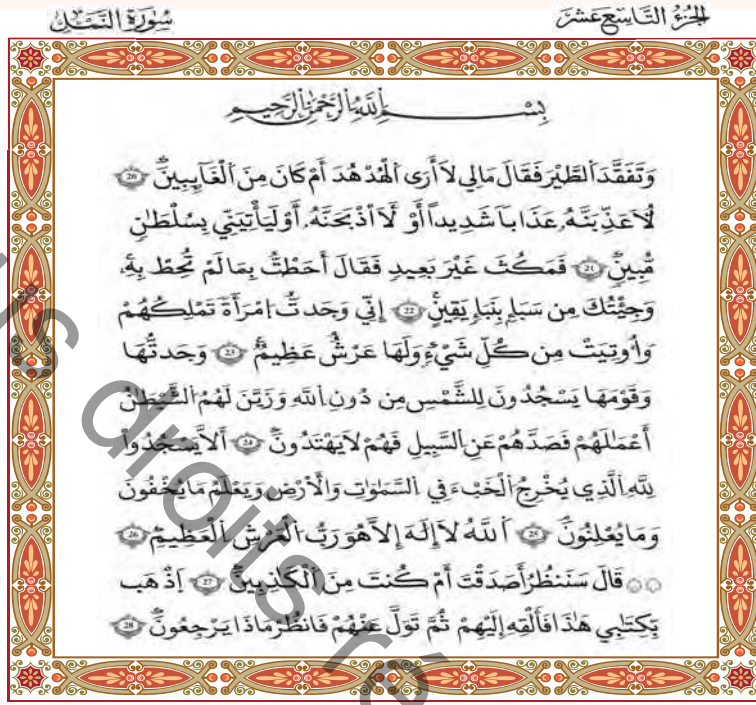 الجُزْءُ التَّاسِع عَشَر
سُورَة النَّمْل
بِسْمِ اللَّهِ الرَّحْمَٰنِ الرَّحِيمِ
وَتَفَقَّدَ اَلطَّيْرَ فَقَالَ مَالِي لَا أَرَى اَلْهُدْهُدَ أَمْ كَانَ مِنَ اَلْغَآئِبِينَۖ 20
لُأعَذِّبَنَّهُۥ عَذَاباَ شَدِيداً أَوْ لَا أَذْبَحَنَّهُۥ أَوْ لَيَأْتِيَنِّي بِسُلْطَٰنٖ
مُّبِينٖۖ 21 فَمَكُثَ غَيْرَ بَعِيدٖ فَقَالَ أَحَطتُّ بِمَا لَمْ تُحِطْ بِهِۦ
وَجِئْتُكَ مِن سَبَإٖ بِنَبَإٖ يَقِينٍۖ 22 إِنِّي وَجَدتُّ اُمْرَأَةٗ تَمْلِكُهُمْ
وَأُوتِيَتْ مِن كُلِّ شَيْءٖ وَلَهَا عَرْشٌ عَظِيمٌۖ 23 وَجَدتُّهَا
وَقَوْمَهَا يَسْجُدُونَ لِلشَّمْسِ مِن دُونِ اِللَّهِ وَزَيَّنَ لَهُمُ اُلشَّيْطَٰنُ
أَعْمَٰلَهُمْ فَصَدَّهُمْ عَنِ اِلسَّبِيلِ فَهُمْ لَا يَهْتَدُونَۖ 24 أَلَّا يَسْجُدُواْ
لِلهِ اِلَّذِي يُخْرِجُ اُلْخَبْءَ فِي اِلسَّمَٰوَٰتِ وَالْأَرْضِ وَيَعْلَمُ مَا يُخْفُونَ
وَمَا يُعْلِنُونَۖ 25 اَللَّهُ لَا إِلَٰهَ إِلَّا هُوَ رَبُّ اُلْعَرْشِ اِلْعَظِيمِۖ 26
قَالَ سَنَنظُرُ أَصَدَقْتَ أَمْ كُنتَ مِنَ اَلْكَٰذِبِينَۖ 27 اَذْهَب
بِّكِتَٰبِي هَٰذَا فَأَلْقِهِ إِلَيْهِمْ ثُمَّ تَوَلَّ عَنْهُمْ فَانظُرْ مَاذَا يَرْجِعُونَۖ 28
droits